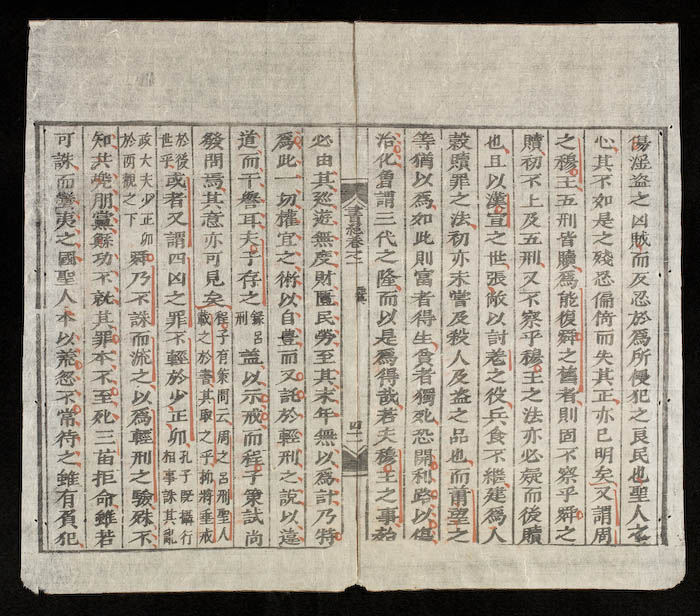 傷淫盜之凶賊而反忍於爲所侵犯之良民也聖人之
心其不如是之殘忍偏倚而失其正亦已明矣又謂周
之穆王五刑皆贖爲能復舜之舊者則固不察乎舜之
贖初不上及五刑又不察乎穆王之法亦必疑而後贖
也且以漢宣之世張敞以討羌之役兵食不繼建爲入
穀贖罪之法初亦未嘗及殺人及盜之品也而蕭望之
等猶以爲如此則富者得生貧者獨死恐開利路以傷
治化曾謂三代之隆而以是爲得哉若夫穆王之事殆
書經卷之一 舜典 四二
必由其巡遊無度財匱民勞至其末年無以爲計乃特
爲此一切權宜之術以自豊而又託於輕刑之說以違
道而干譽耳夫子存之錄呂刑盖以示戒而程子策試尚
發問焉其意亦可見矣程子有策問云周之呂刑聖人載之於書其取之乎抑將垂戒
於後世乎或者又謂四凶之罪不輕於少正卯孔子旣攝行相事誅其亂
政大夫少正卯於兩觀之下舜乃不誅而流之以爲輕刑之驗殊不
知共兜朋黨鯀功不就其罪本不至死三苗拒命雖若
可誅而蠻夷之國聖人本以荒忽不常待之雖有負犯